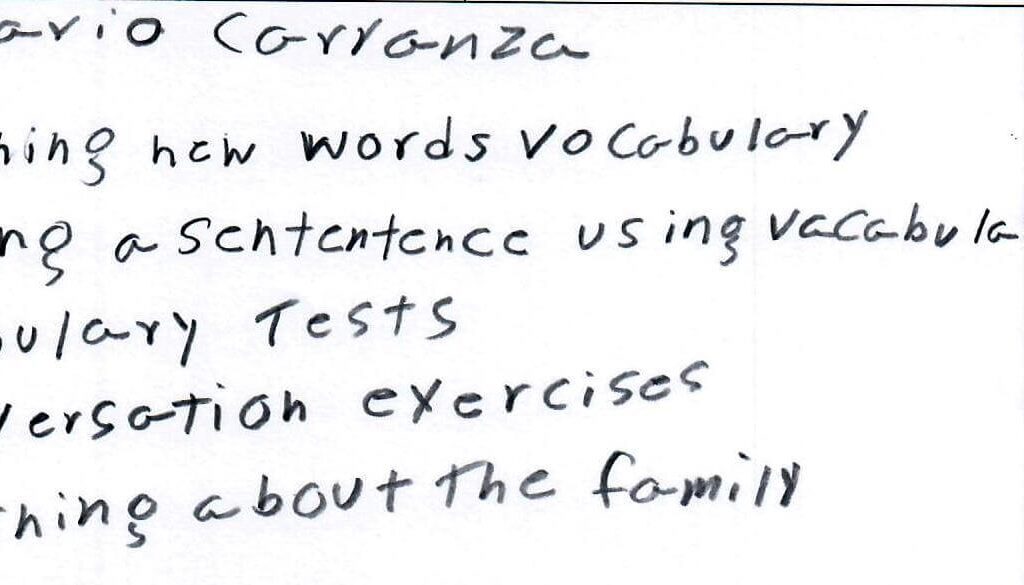 ario Carranza
ning new words vocabulary
ng a sententence using vacabula
ulary Tests
versation exercises
hing about the family